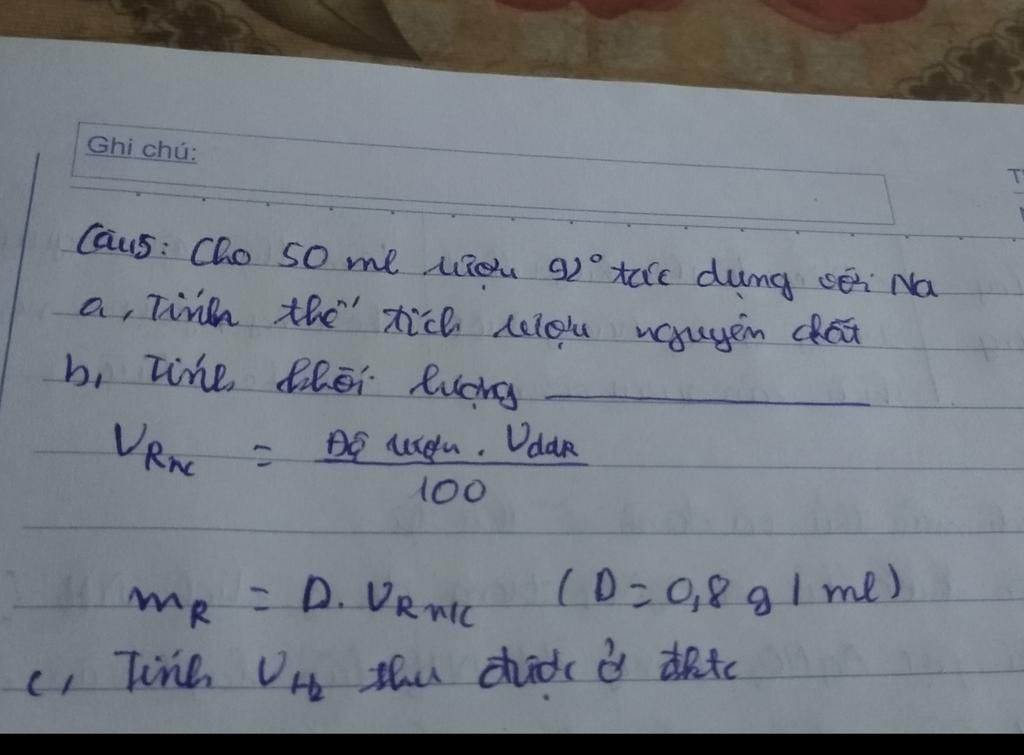 Ghi chú:
Câu5: Cho 50 ml rượu 92° tác dụng với Na
a, Tính thể tích rượu nguyên chất
b, Tính khối lượng ________
V_Rnc = Độ rượu . V_ddR / 100
m_R = D. V_Rn/c (D = 0,8 g / ml)
c, Tính V_H2 thu được ở đktc